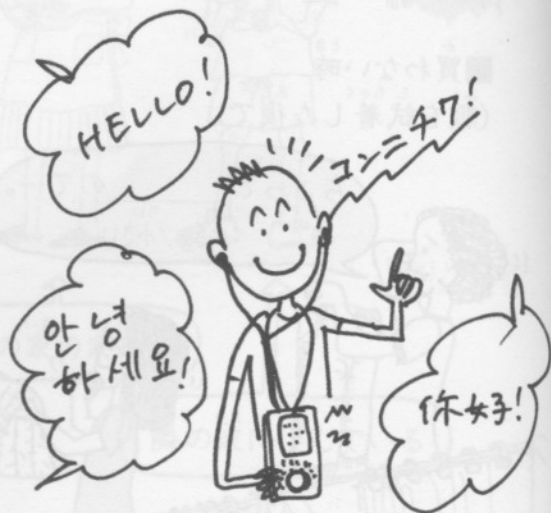 HELLO!
コンニチワ!
안녕
하세요!
你好!